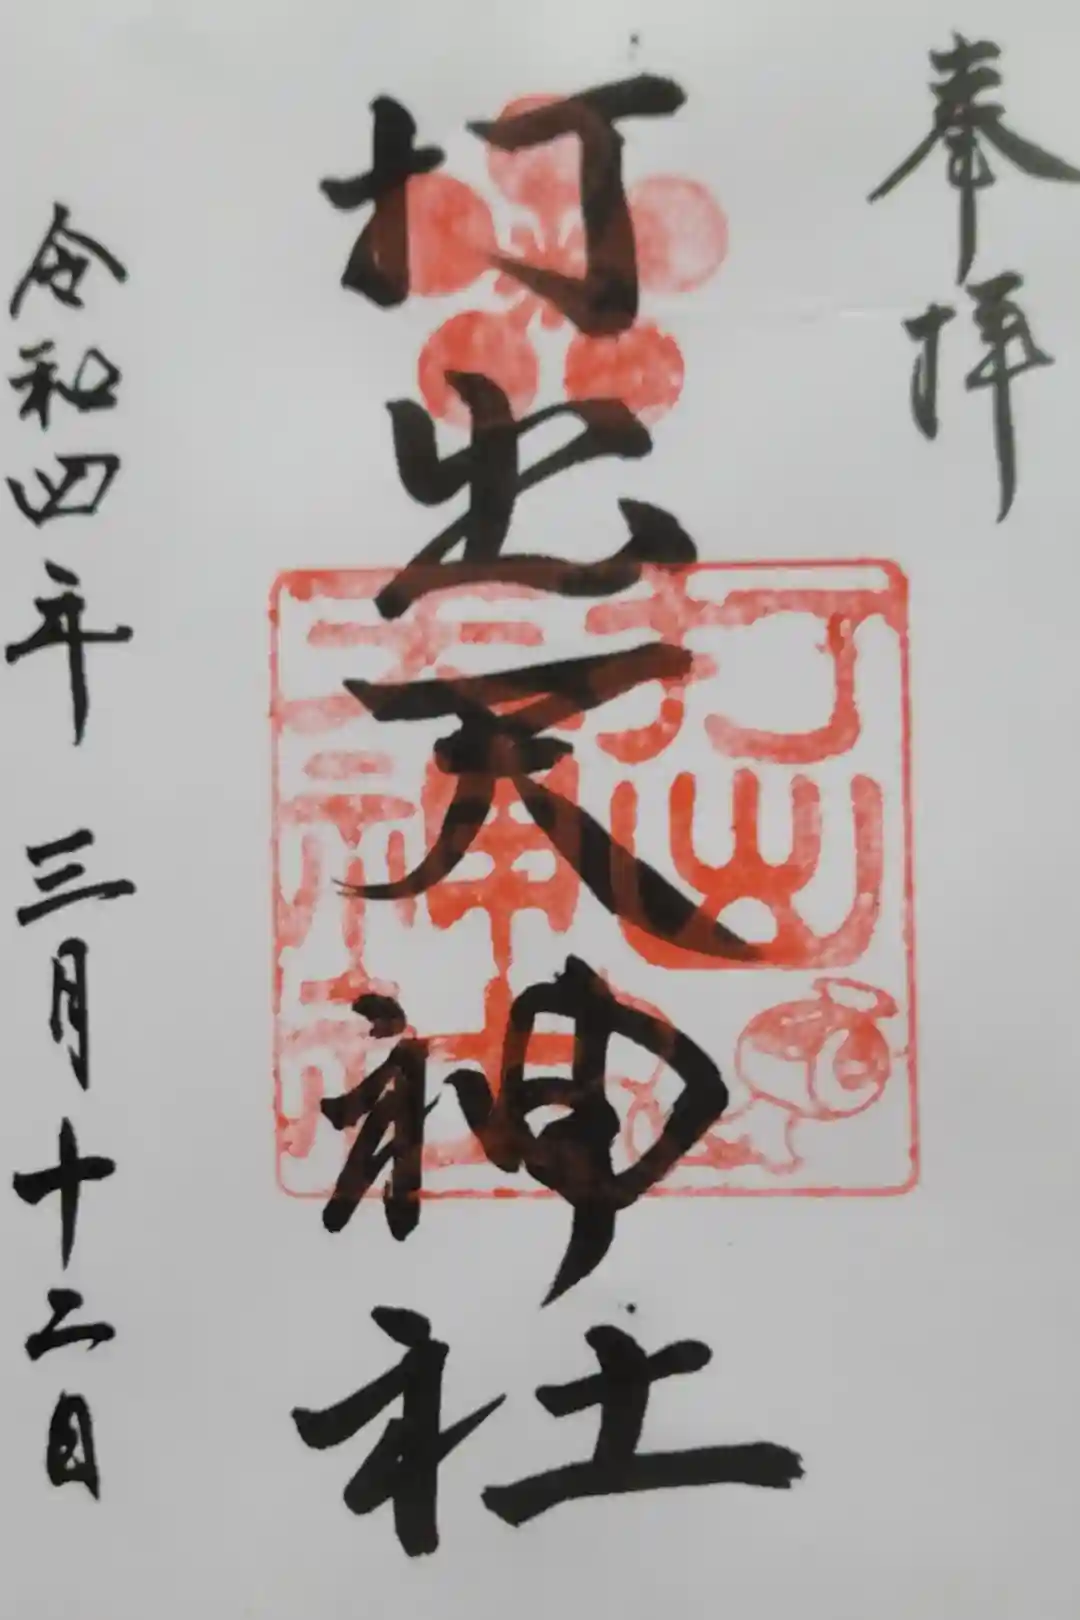 奉拝
打出天神社
令和四年 三月十二日
打出
天神社